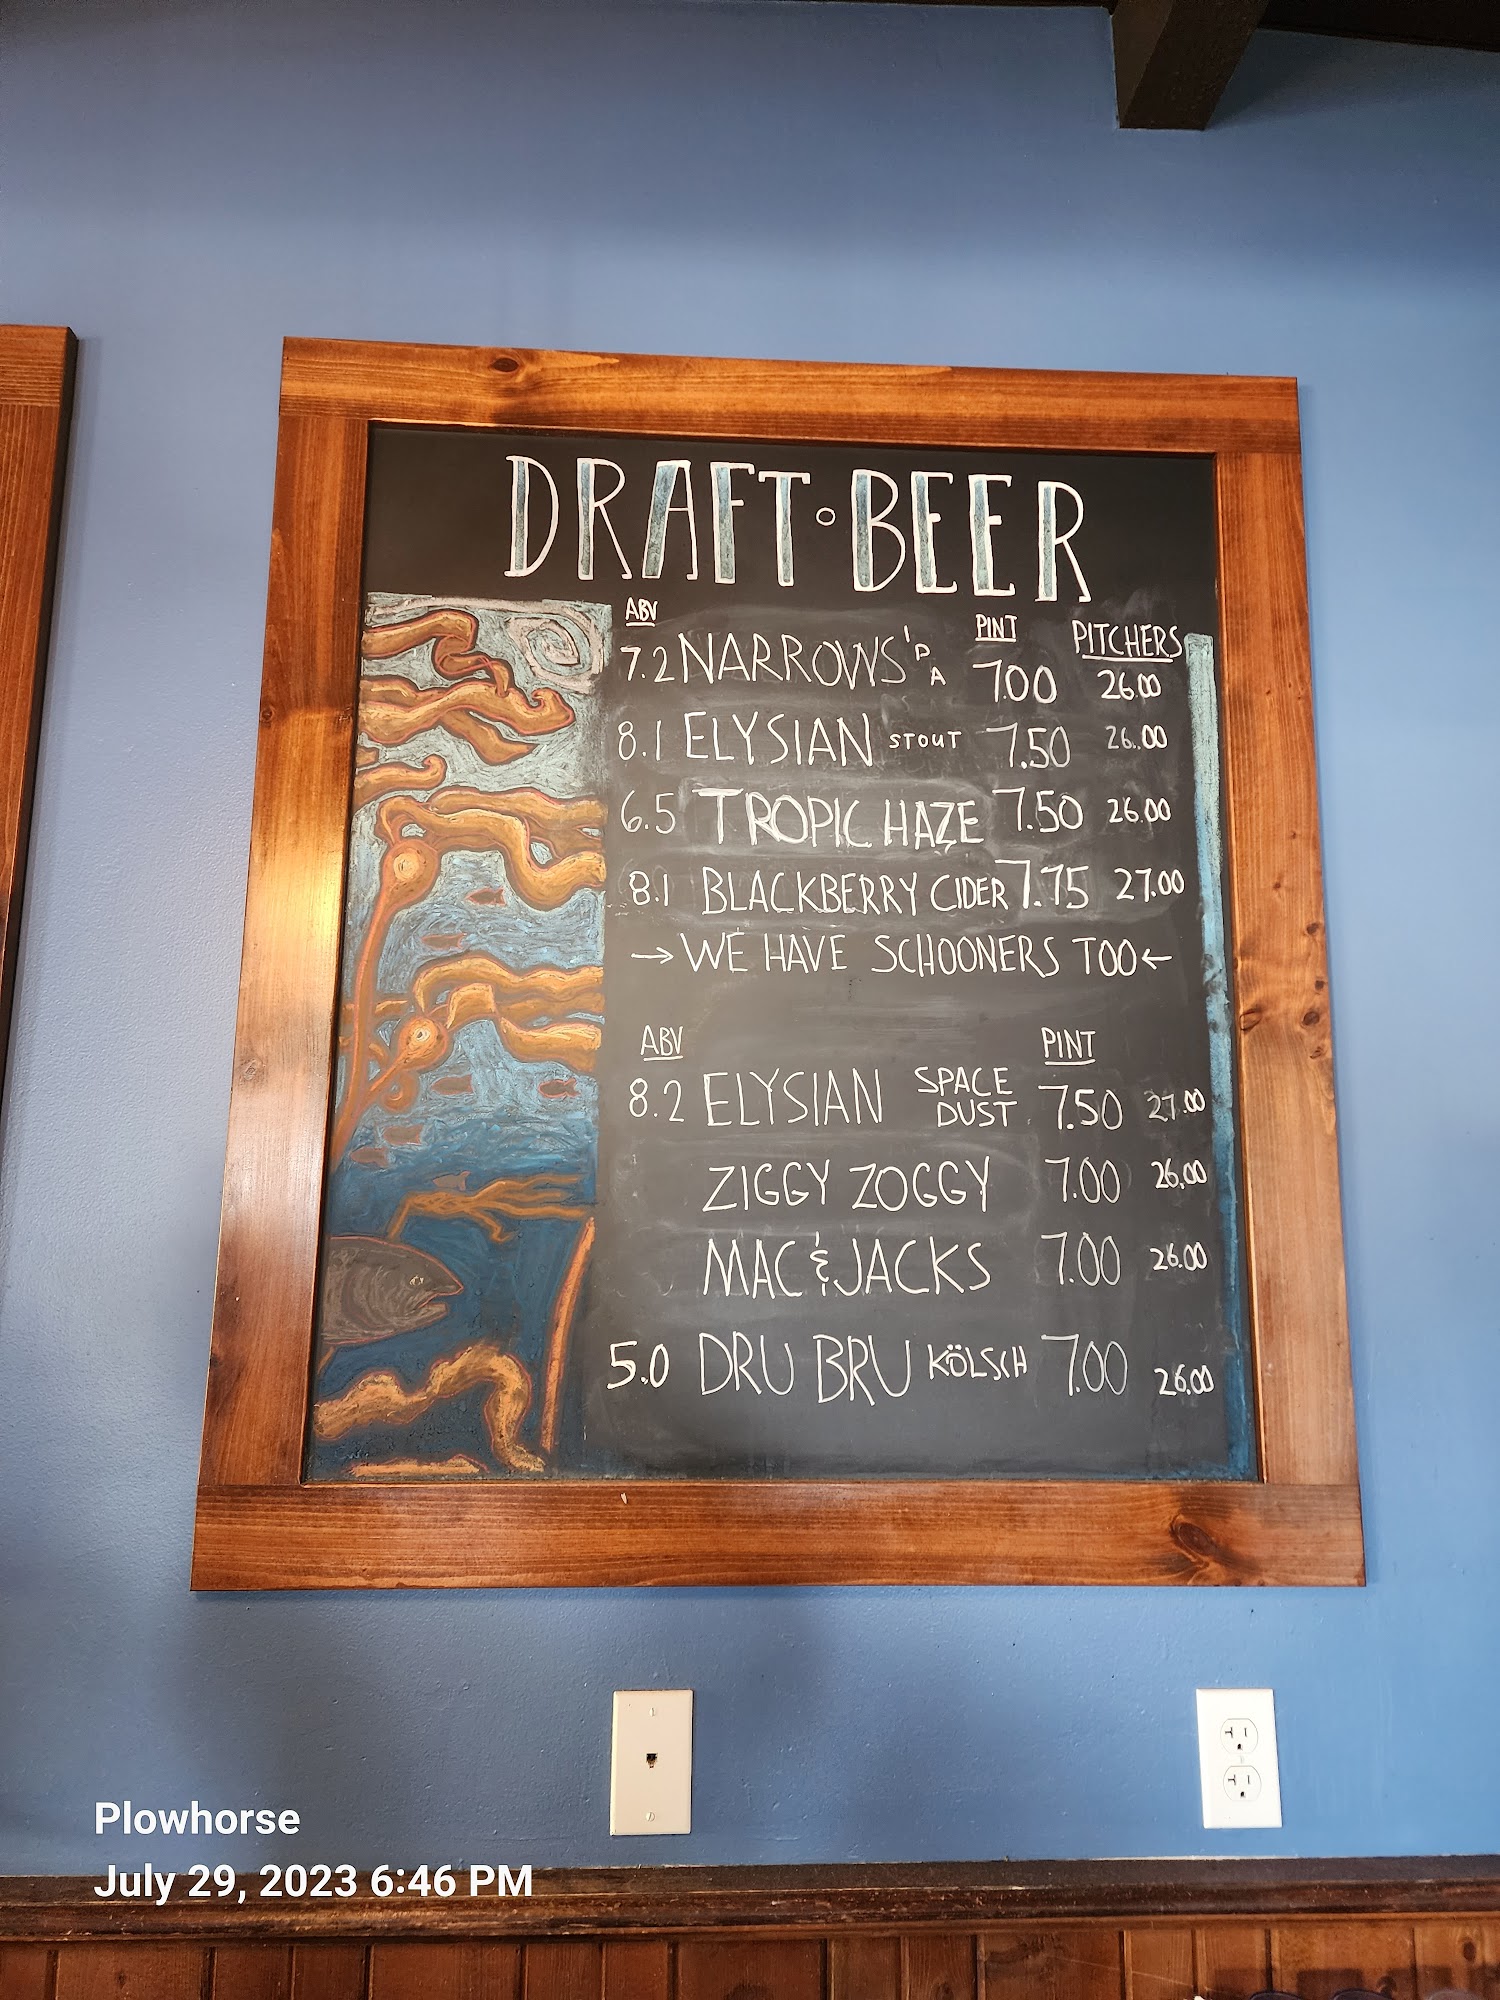 DRAFT ∘ BEER
ABV PINT PITCHERS
7.2 NARROWS IPA 7.00 26.00
8.1 ELYSIAN STOUT 7.50 26.00
6.5 TROPIC HAZE 7.50 26.00
8.1 BLACKBERRY CIDER 7.75 27.00
→ WE HAVE SCHOONERS TOO ←
ABV PINT
8.2 ELYSIAN SPACE DUST 7.50 27.00
ZIGGY ZOGGY 7.00 26.00
MAC & JACKS 7.00 26.00
5.0 DRU BRU KÖLSCH 7.00 26.00
Plowhorse
July 29, 2023 6:46 PM